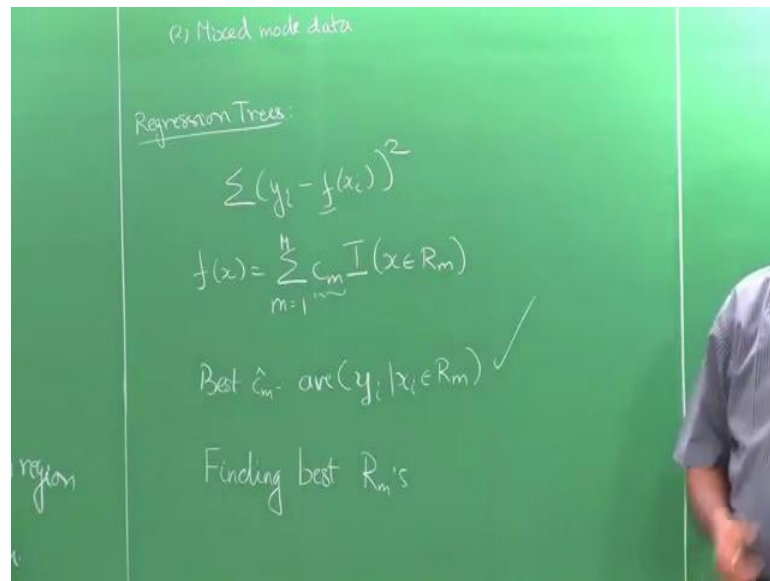 (2) Mixed mode data
Regression Trees:
∑(yᵢ - f(xᵢ))²
f(x) = ∑ₘ₌₁ᴹ cₘ I(x ∈ Rₘ)
Best ĉₘ - ave(yᵢ | xᵢ ∈ Rₘ) ✓
region
Finding best Rₘ's